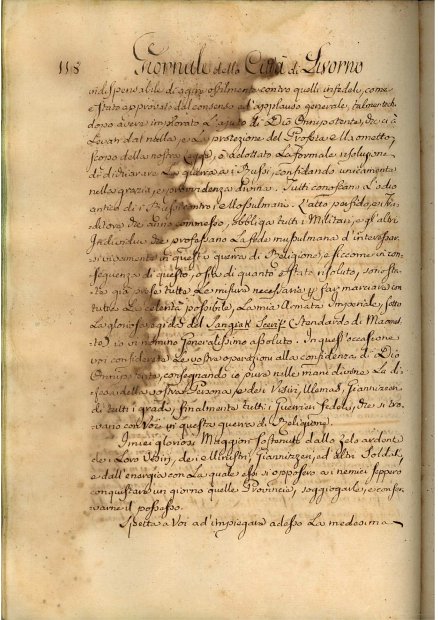 118 Giornale della Città di Livorno
indispensabile di agire ostilmente contro quelli infedeli, come
è stato approvato dal consenso ed applauso generale, talmentechè
dopo avere implorato L'ajuto di Dio Onnipotente, che ci à
Levan dal nulla, e La protezione del Profeta Maometto,
scorso della nostra è adottato La formale risoluzione
di dichiarare La guerra a i Russi, confidando unicamente
nella grazia, e provvidenza divina. Tutti conoscono L'odio
antico di i Russi contro i Mossulmani. L'atto perfido, e tra
ditore che anno commesso, obbliga tutti i Militari, e gl'altri
Individui che professano La fede musulmana d'interessar
si vivamente in questa guerra di Religione, e siccome in con
seguenza di questo, oltre di quanto è stato risoluto, sono sta
te già prese tutte Le misure necessarie p far marciare con
tutta La celerità possibile, La mia Armata Imperiale, sotto
La gloriosa egida del Sangiak Scerif (Standardo di Maome
tto) io vi nomino Generalissimo assoluto. In quest'occasione
voi considerate Le vostre operazioni alla confidenza di Dio
Onnipotente, consegnando io pure nelle mani divine La di
fesa della vostra Persona, e dei Vesiri, Ulemas, Giannizzeri
di tutti i gradi, finalmente tutti i Guerrieri fedeli, che si tro
vano con Voi in questa guerra di Religione.
I miei gloriosi Maggiori sostenuti dallo zelo ardente
dei Loro Vesiri, dei Ministri, Giannizzeri, ed altri Soldati,
e dall'energia con La quale essi si opposero a i nemici seppero
conquistare un giorno quelle Provincie, soggiogarle, e conser
varne il possesso.
Spetta a Voi ad impiegare adesso La medesima